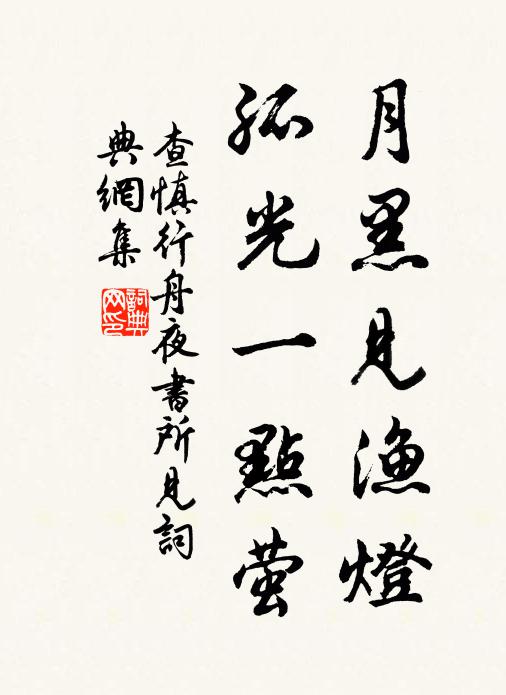 月黑見漁燈
孤光一點萤
查慎行舟夜書所見詞
典網集
詞典网印